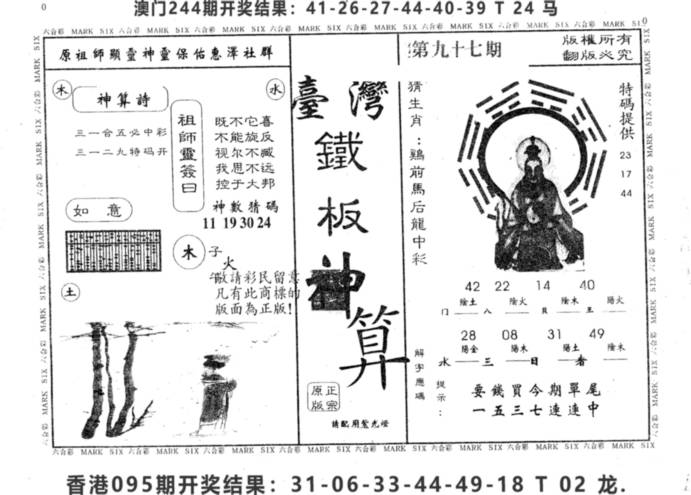 澳门244期开奖结果：41-26-27-44-40-39 T 24 马
原祖師顯靈神靈保佑惠澤社群
木
水
神算詩
三一合五必中彩
三一二九特码开
祖師靈簽曰
既不它喜
不能旋反
视尔不臧
我思不远
控于大邦
如意
神數猜碼
11 19 30 24
木
子
火
午
敬請彩民留意
凡有此商標的
版面為正版！
土
臺灣
鐵板神算
正宗
原版
請配用紫光燈
第九十七期
版權所有
翻版必究
猜生肖：鷄前馬后龍中彩
特碼提供
23
17
44
42 22 14 40
陰土 陰火 陰木 陽火
28 08 31 49
陽金 陽木 陽土 陰木
解字應碼
提示：
要錢買今期單尾
一五三七連連中
六合彩 MARK SIX 六合彩 MARK SIX 六合彩 MARK SIX
香港095期开奖结果：31-06-33-44-49-18 T 02 龙.